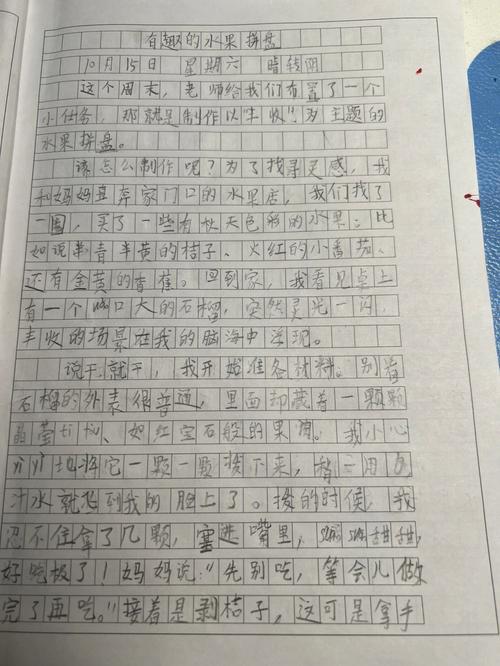 有趣的水果拼盘
10月15日 星期六 晴转阴
这个周末，老师给我们布置了一个
小任务，那就是制作以“丰收”为主题的
水果拼盘。
该怎么制作呢？为了找寻灵感，我
和妈妈直奔家门口的水果店，我们找了
一圈，买了一些有秋天色彩的水果：比
如说半青半黄的桔子、火红的小番茄、
还有金黄的香蕉。回到家，我看见桌上
有一个碗口大的石榴，突然灵光一闪，
丰收的场景在我的脑海中浮现。
说干就干，我开始准备材料。别看
石榴的外表很普通，里面却藏着一颗颗
晶莹tì tòu、如红宝石般的果肉。我小心
yì yì地将它一颗一颗拨下来，稍一用力
汁水就飞到我的脸上了。拨的时候，我
忍不住拿了几颗，塞进嘴里，甜甜，
好吃极了！妈妈说：“先别吃，等会儿做
完了再吃。”接着是剥桔子，这可是拿手